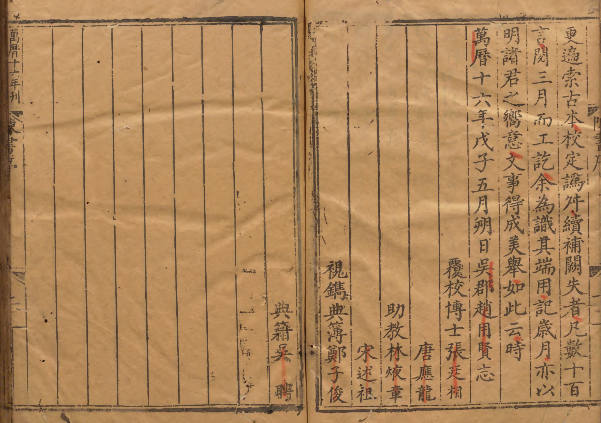 更遍索古本校定譌舛續補闕失者凡數十百
言閱三月而工訖余為識其端用記歲月亦以
明諸君之嚮意文事得成美舉如此云時
萬曆十六年戊子五月朔日吳郡趙用賢志
覆校博士張廷相
唐應龍
助教林煥章
宋述祖
視鐫典簿鄭子俊
典籍吳　聘